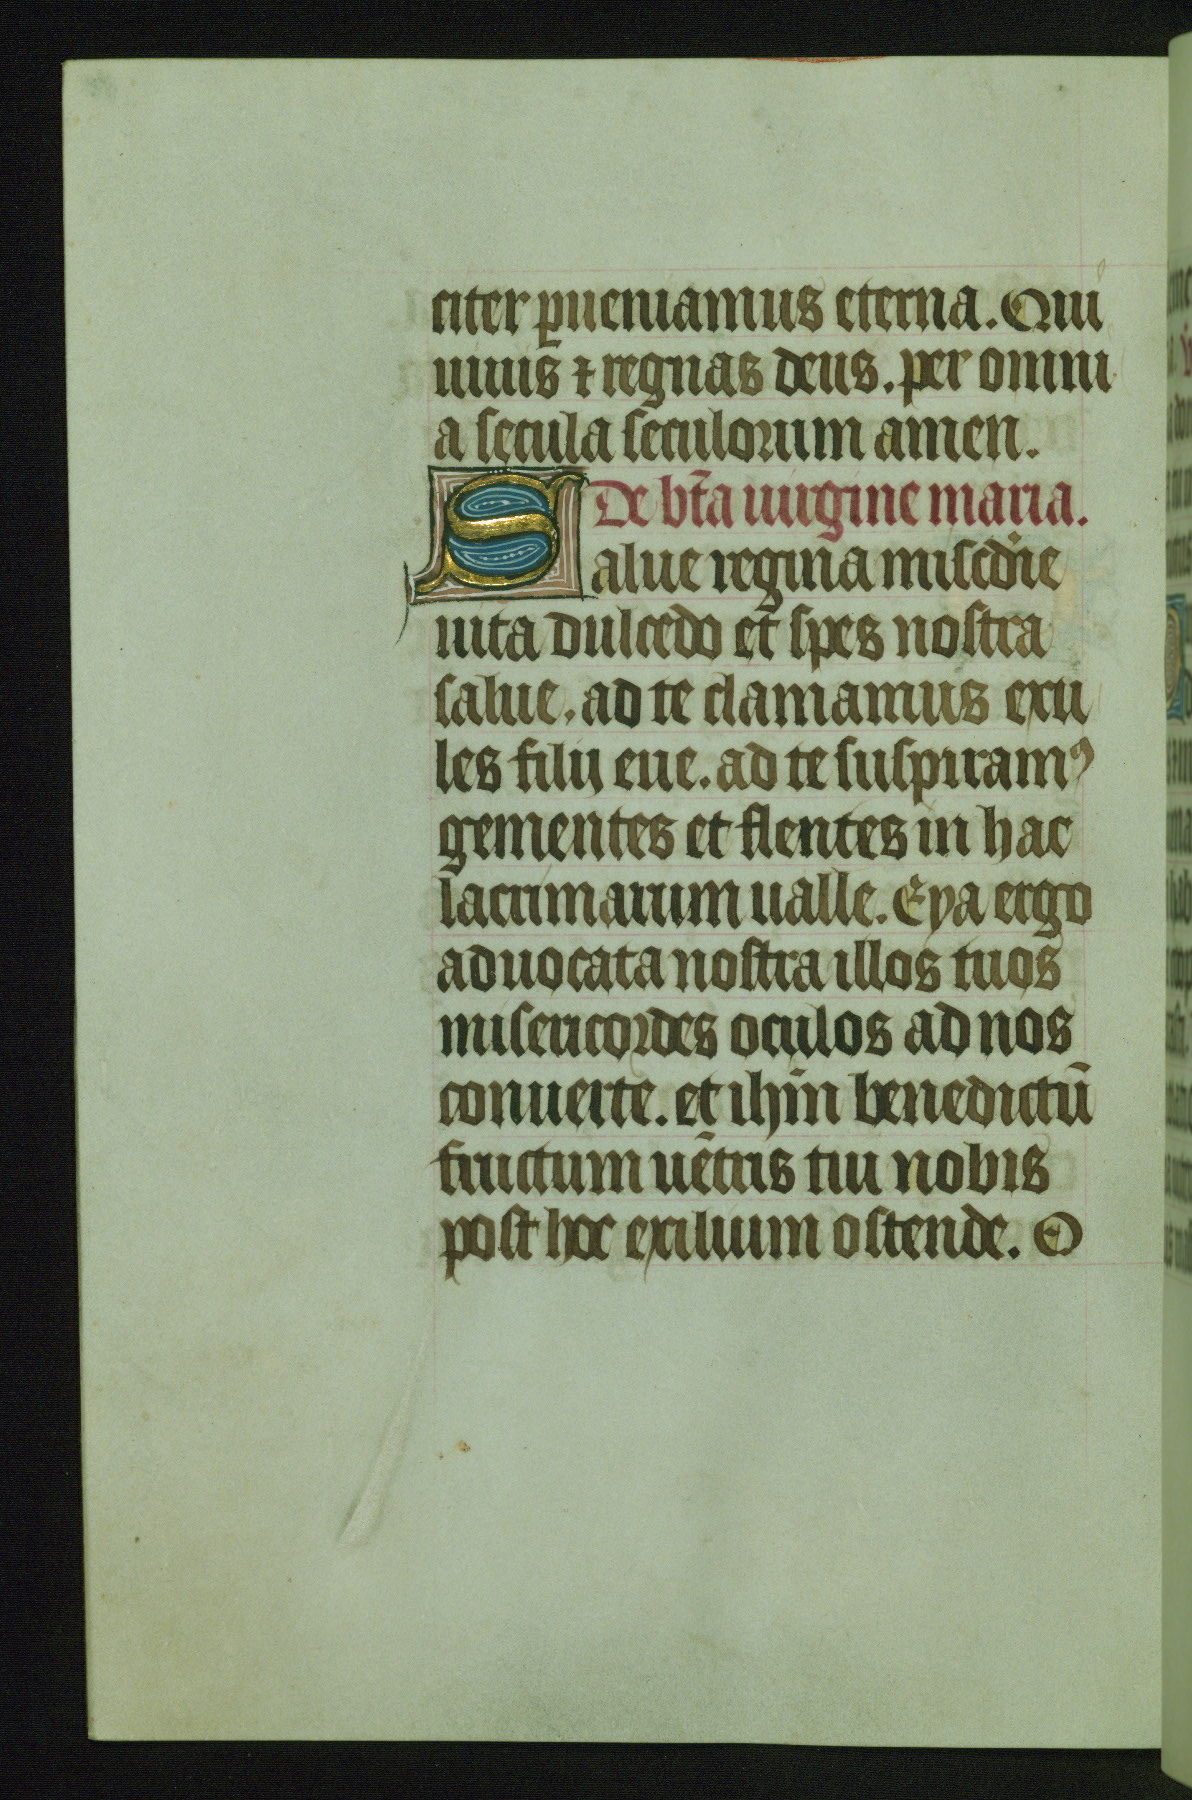 citer ꝑueniamus eterna. Qui
uiuis ⁊ regnas deus. per omni
a secula seculorum amen.
De bt̄a uirgine maria.
Salue regina misc̄die
uita dulcedo et spes nostra
salue. ad te clamamus exu
les filij eue. ad te suspiramꝰ
gementes et flentes in hac
lacrimarum ualle. Eya ergo
aduocata nostra illos tuos
misericordes oculos ad nos
conuerte. et ihm̄ benedictū
fructum uētris tui nobis
post hoc exilium ostende. O